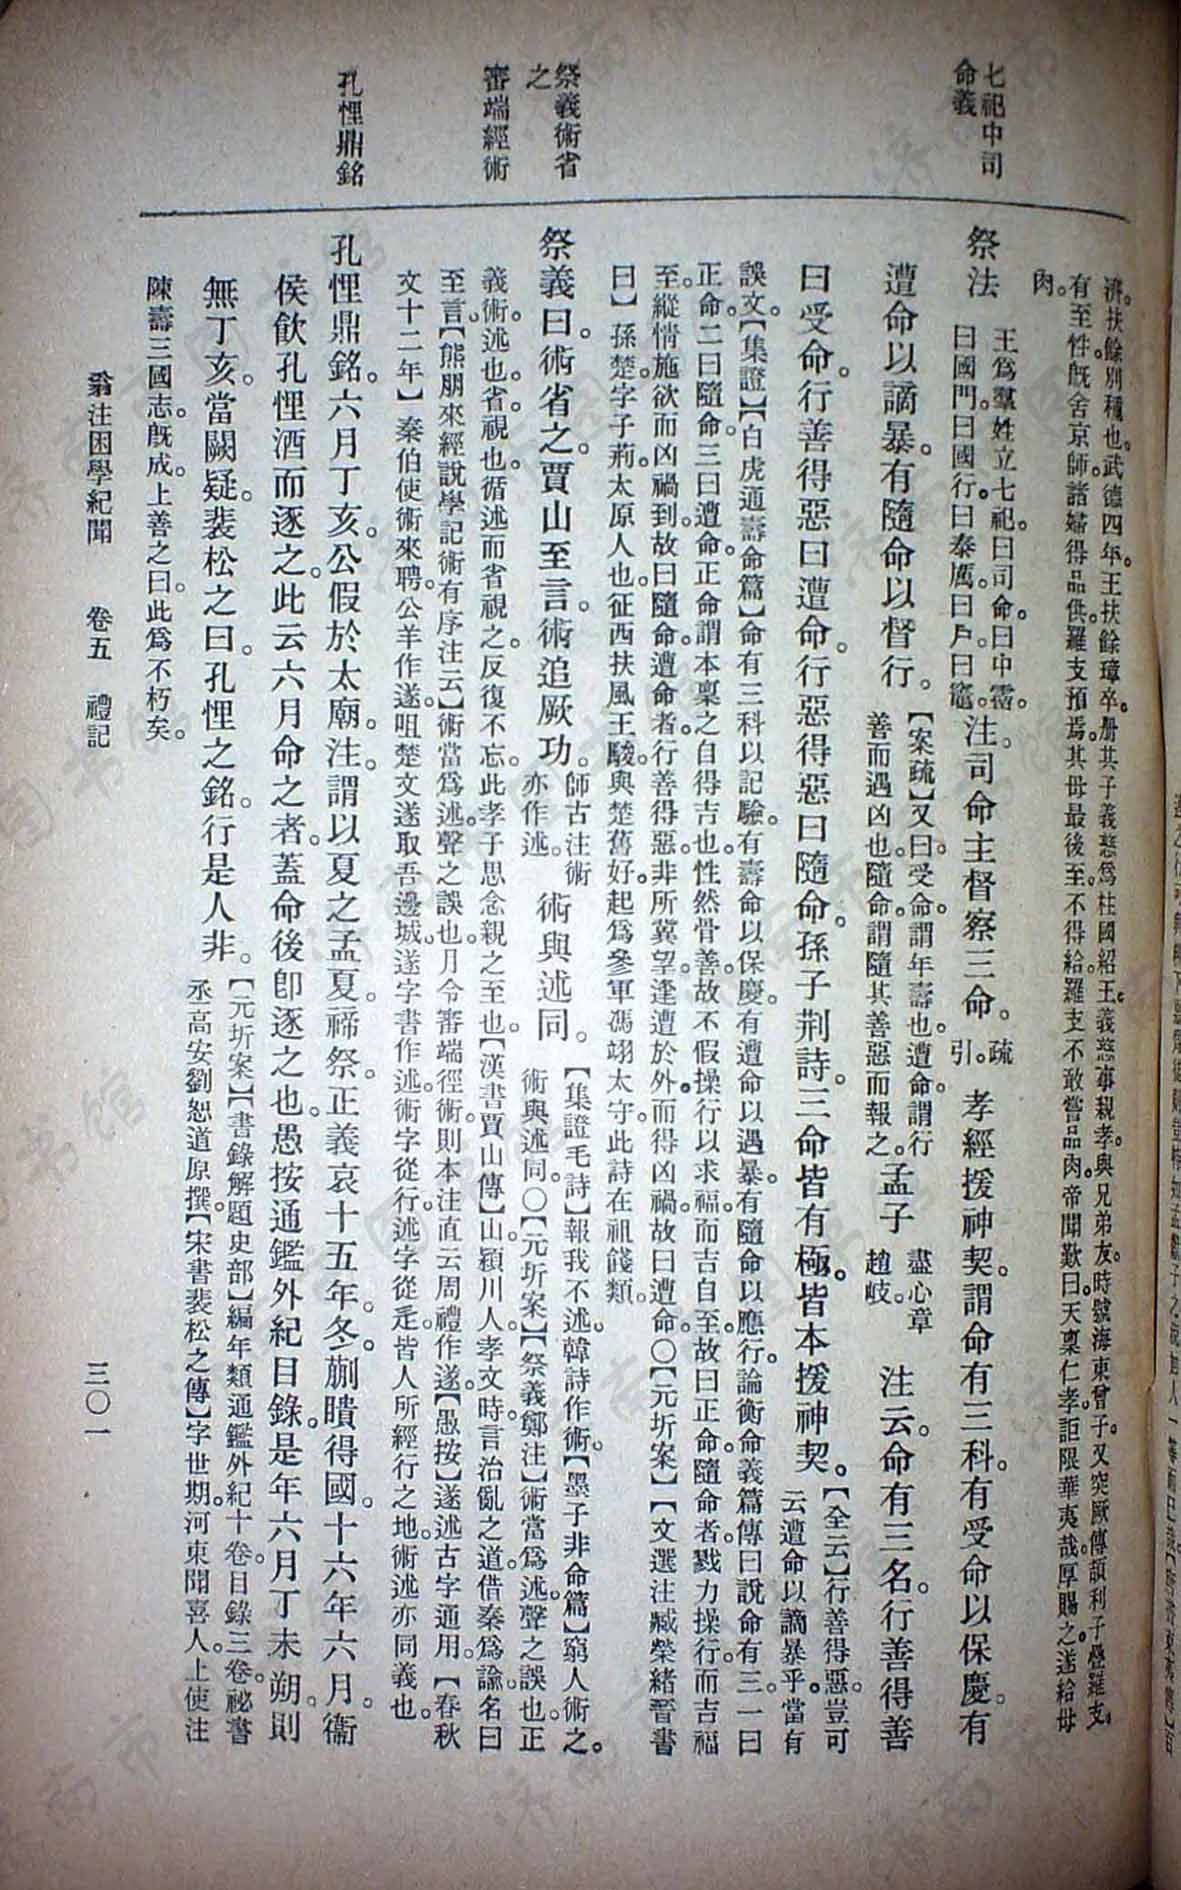 七祀中司
命義
祭義術省
之
審端經術
孔悝鼎銘
濟。扶餘別種也。武德四年。王扶餘璋卒。册其子義慈爲柱國。紹王。義慈事親孝。與兄弟友。時號海東曾子。又突厥傳。頡利子疊羅支。
有至性。既舍京師。諸婦得品供。羅支預焉。其母最後至。不得給。羅支不敢嘗品肉。帝聞歎曰。天稟仁孝。詎限華夷哉。厚賜之。遂給母
肉。
祭法
王爲羣姓立七祀。曰司命。曰中霤。
曰國門。曰國行。曰泰厲。曰戶。曰竈。
注。司命主督察三命。
疏
引。
孝經援神契。謂命有三科。有受命以保慶。有
遭命以謫暴。有隨命以督行。
【案疏】又曰。受命。謂年壽也。遭命。謂行
善而遇凶也。隨命。謂隨其善惡而報之。
孟子
盡心章
趙岐。
注云。命有三名。行善得善
曰受命。行善得惡曰遭命。行惡得惡曰隨命。孫子荆詩。三命皆有極。皆本援神契。
【全云】行善得惡。豈可
云遭命以謫暴乎。當有
誤文。【集證】【白虎通壽命篇】命有三科以記驗。有壽命以保慶。有遭命以遇暴。有隨命以應行。論衡命義篇。傳曰。說命有三。一曰
正命。二曰隨命。三曰遭命。正命謂本稟之自得吉也。性然骨善。故不假操行以求福。而吉自至。故曰正命。隨命者。戮力操行而吉福
至。縱情施欲而凶禍到。故曰隨命。遭命者。行善得惡。非所冀望。逢遭於外。而得凶禍。故曰遭命。〇【元圻案】【文選注臧榮緒晉書
曰】孫楚。字子荊。太原人也。征西扶風王駿。與楚舊好。起爲參軍。馮翊太守。此詩在祖餞類。
祭義曰。術省之。賈山至言。術追厥功。
師古注。術
亦作述。
術與述同。
【集證毛詩】報我不述。韓詩作術。【墨子非命篇】窮人術之。
術與述同。〇【元圻案】【祭義鄭注】術當爲述。聲之誤也。正
義。術。述也。省。視也。循述而省視之。反復不忘。此孝子思念親之至也。【漢書賈山傳】山。潁川人。孝文時。言治亂之道。借秦爲諭。名曰
至言。【熊朋來經說學記術有序注云】術當爲述。聲之誤也。月令審端徑術。則本注直云周禮作遂。【愚按】遂述古字通用。【春秋
文十二年】秦伯使術來聘。公羊作遂。咀楚文遂取吾邊城。遂字書作述。術字從行。述字從辵。皆人所經行之地。術述亦同義也。
孔悝鼎銘。六月丁亥。公假於太廟。注。謂以夏之孟夏。禘祭。正義。哀十五年冬。蒯聵得國。十六年六月。衞
侯飮孔悝酒而逐之。此云六月命之者。蓋命後卽逐之也。愚按通鑑外紀目錄。是年六月丁未朔。則
無丁亥。當闕疑。裴松之曰。孔悝之銘。行是人非。
【元圻案】【書錄解題史部】編年類。通鑑外紀十卷。目錄三卷。祕書
丞高安劉恕道原撰。【宋書裴松之傳】字世期。河東聞喜人。上使注
陳壽三國志。既成。上善之曰。此爲不朽矣。
翁注困學紀聞 卷五 禮記
三〇一